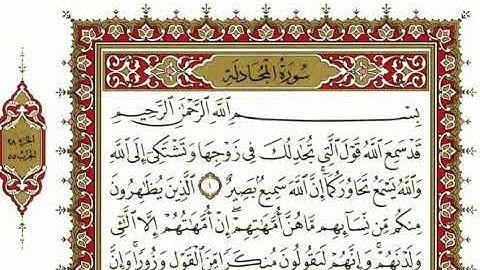 سُورَةُ المُجَادلَة
الجزء ٢٨
الحزب ٥٥
بِسْمِ اللَّهِ الرَّحْمَٰنِ الرَّحِيمِ
قَدْ سَمِعَ اللَّهُ قَوْلَ الَّتِي تُجَٰدِلُكَ فِي زَوْجِهَا وَتَشْتَكِي إِلَى اللَّهِ
وَاللَّهُ يَسْمَعُ تَحَاوُرَكُمَا إِنَّ اللَّهَ سَمِيعٌ بَصِيرٌ ١ الَّذِينَ يُظَٰهِرُونَ
مِنكُم مِّن نِّسَآئِهِم مَّا هُنَّ أُمَّهَٰتِهِمْ إِنْ أُمَّهَٰتُهُمْ إِلَّا الَّٰٓـِٔي
وَلَدْنَهُمْ وَإِنَّهُمْ لَيَقُولُونَ مُنكَرًا مِّنَ الْقَوْلِ وَزُورًا وَإِنَّ